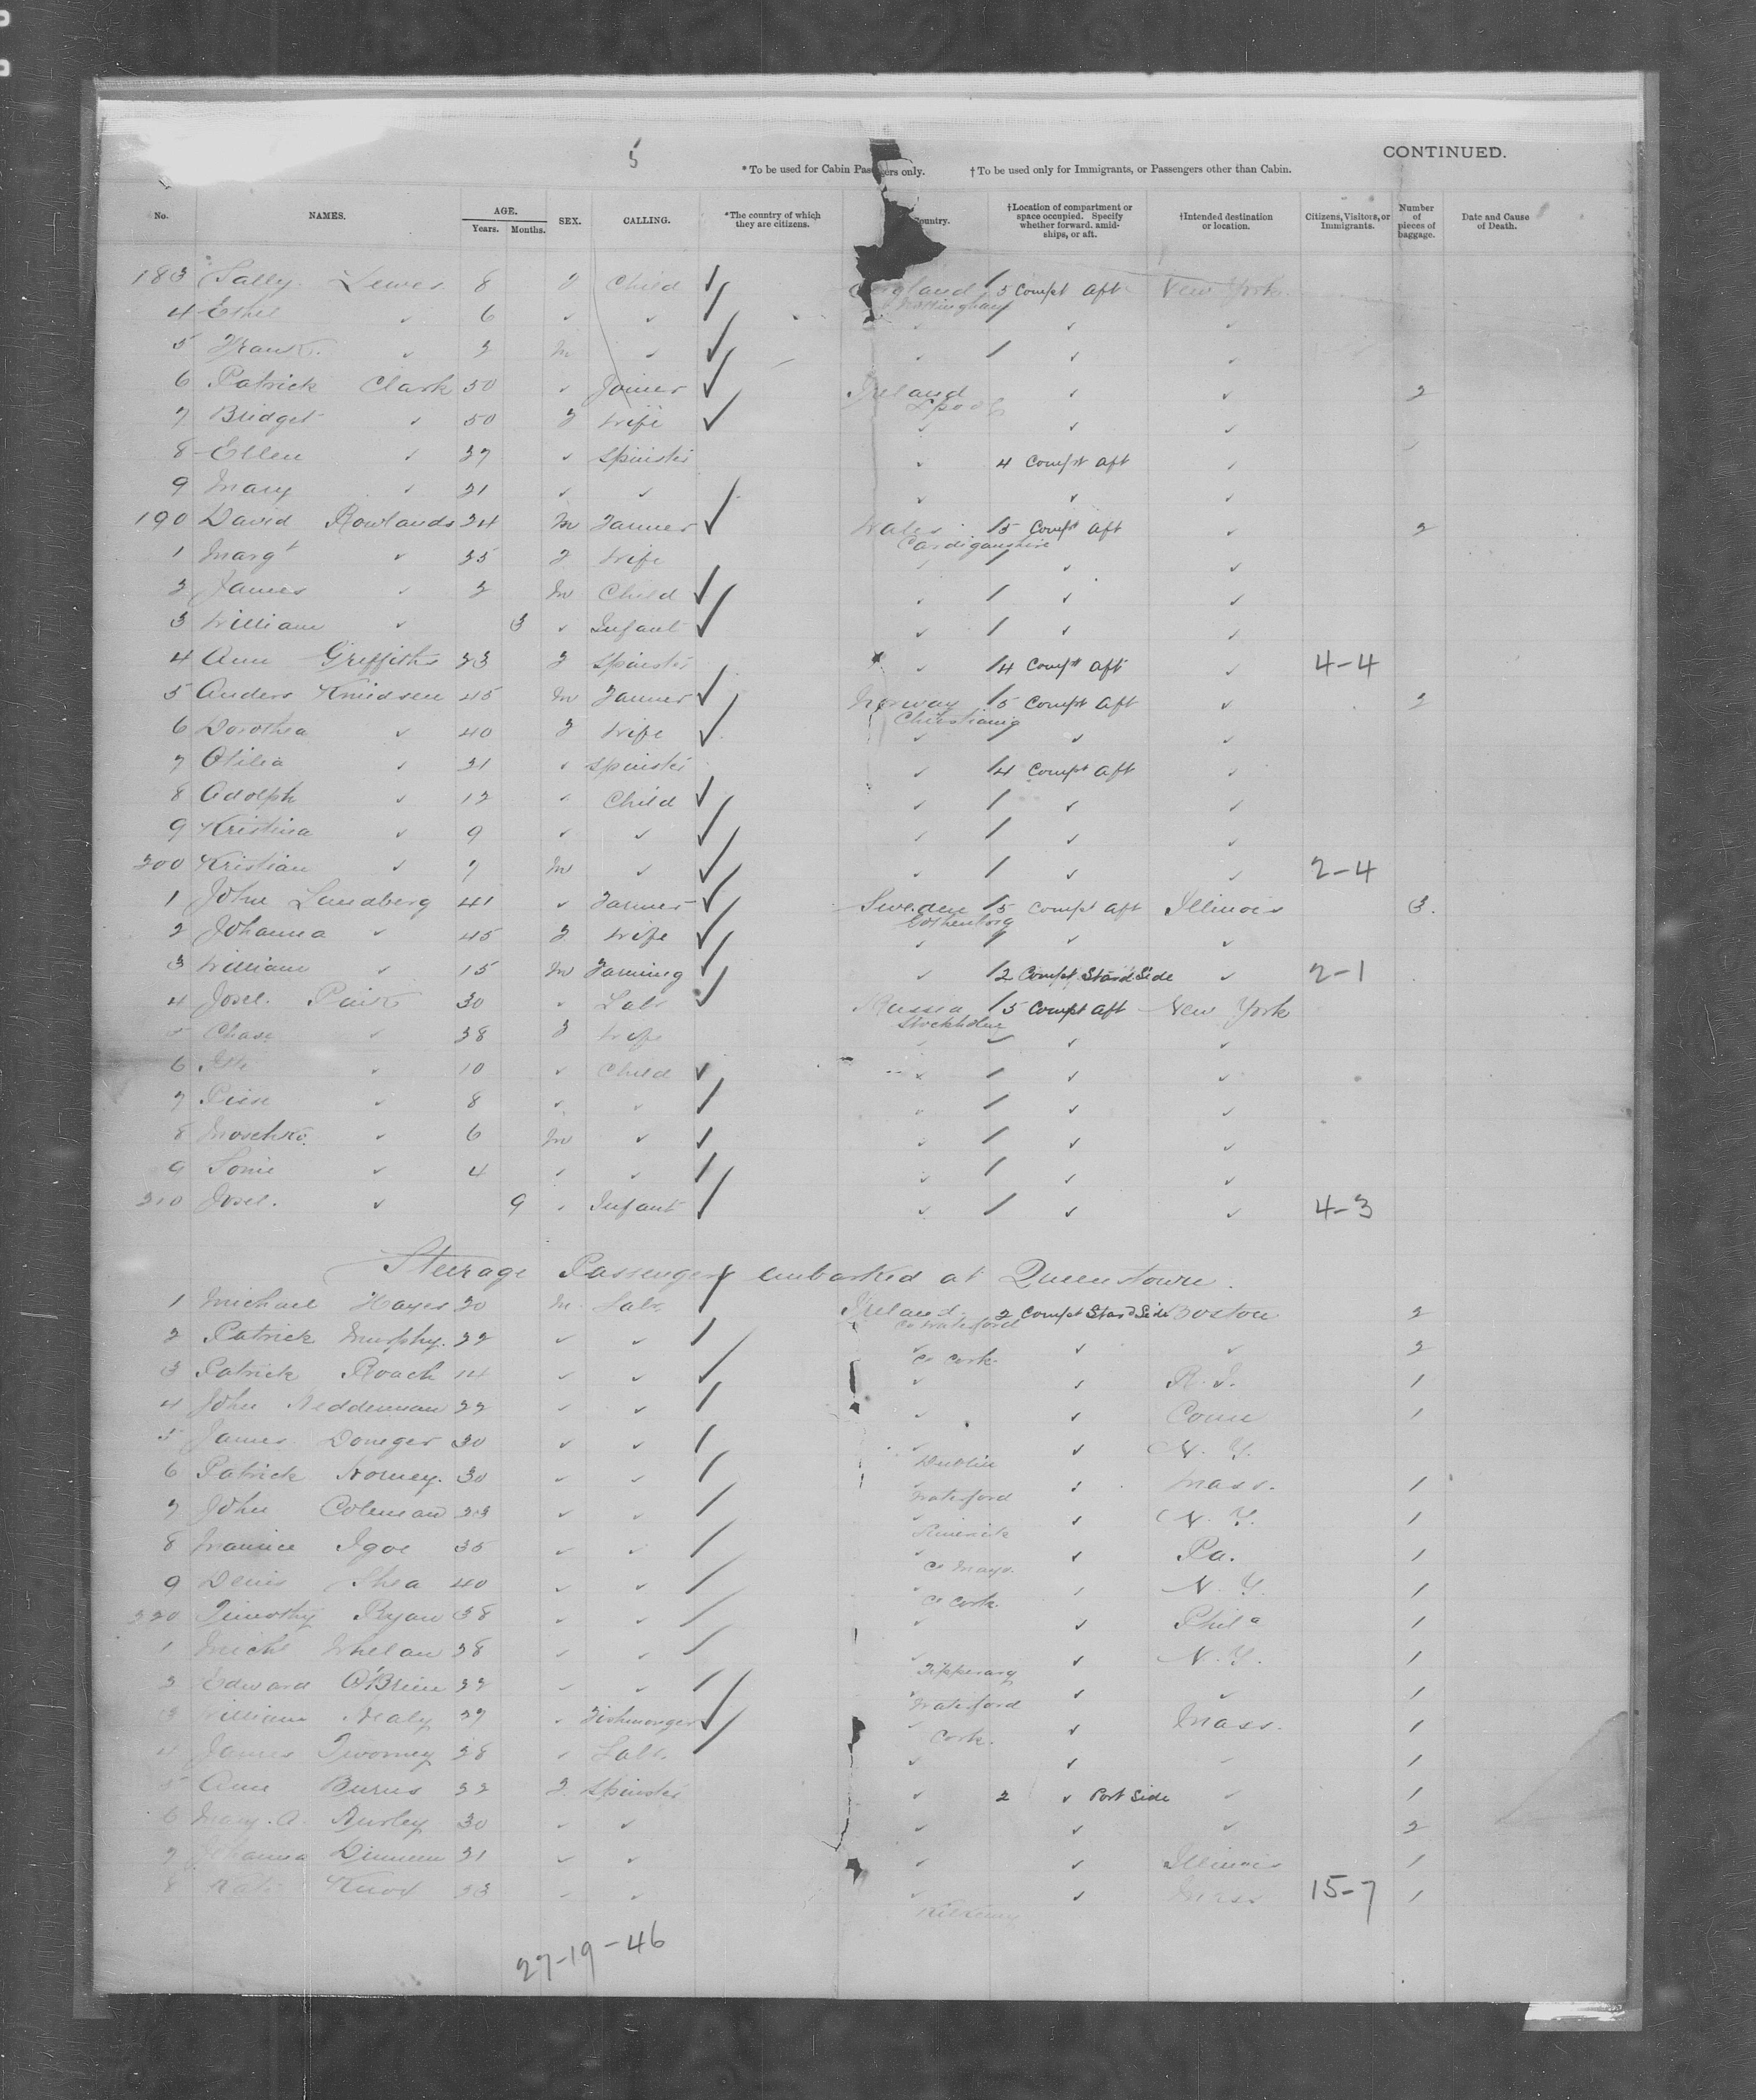 5
CONTINUED.
* To be used for Cabin Passengers only. † To be used only for Immigrants, or Passengers other than Cabin.
No. NAMES. AGE. Years. Months. SEX. CALLING. *The country of which they are citizens. Country. †Location of compartment or space occupied. Specify whether forward, amidships, or aft. †Intended destination or location. Citizens, Visitors, or Immigrants. Number of pieces of baggage. Date and Cause of Death.
183 Sally Lewes 8 F Child England Nottingham 5 Compt Aft New York
4 Ethel ✓ 6 ✓ ✓ ✓ ✓ ✓
5 Frank ✓ 2 M ✓ ✓ ✓ ✓
6 Patrick Clark 50 ✓ Joiner Ireland L'pool ✓ ✓ 2
7 Bridget ✓ 50 F Wife ✓ ✓ ✓
8 Ellen ✓ 27 ✓ Spinster ✓ 4 Compt Aft ✓
9 Mary ✓ 21 ✓ ✓ ✓ ✓ ✓
190 David Rowlands 24 M Farmer Wales Cardiganshire 5 Compt Aft ✓ 2
1 Margt ✓ 25 F Wife ✓ ✓ ✓
2 James ✓ 2 M Child ✓ ✓ ✓
3 William ✓ 3 ✓ Infant ✓ ✓ ✓
4 Ann Griffiths 23 F Spinster ✓ 4 Compt Aft ✓ 4-4
5 Anders Knudsen 45 M Farmer Norway Christiania 5 Compt Aft ✓ 2
6 Dorothea ✓ 40 F Wife ✓ ✓ ✓
7 Otilia ✓ 21 ✓ Spinster ✓ 4 Compt Aft ✓
8 Adolph ✓ 12 ✓ Child ✓ ✓ ✓
9 Kristina ✓ 9 ✓ ✓ ✓ ✓ ✓
200 Kristian ✓ 7 M ✓ ✓ ✓ ✓ 2-4
1 John Sandberg 41 ✓ Farmer Sweden Gothenborg 5 Compt Aft Illinois 3.
2 Johanna ✓ 45 F Wife ✓ ✓ ✓
3 William ✓ 15 M Farming ✓ 2 Compt Starb Side ✓ 2-1
4 Josel. 30 ✓ Labr Russia Stockholm 5 Compt Aft New York
5 ✓ 38 F Wife ✓ ✓ ✓
6 ✓ 10 ✓ Child ✓ ✓ ✓
7 ✓ 8 ✓ ✓ ✓ ✓ ✓
8 Moschko. ✓ 6 M ✓ ✓ ✓ ✓
9 Sonie ✓ 4 ✓ ✓ ✓ ✓ ✓
210 Josel. ✓ 9 ✓ Infant ✓ ✓ ✓ 4-3
Steerage Passengers embarked at Queenstown.
1 Michael Hayes 20 M. Labr Ireland Co Waterford 2 Compt Starb Side Boston 2
2 Patrick Murphy. 22 ✓ ✓ ✓ Co Cork. ✓ ✓ 2
3 Patrick Roach 14 ✓ ✓ ✓ ✓ R. I. 1
4 John Neddennan 22 ✓ ✓ ✓ ✓ Conn 1
5 James Doneger 30 ✓ ✓ ✓ Dublin ✓ N. Y.
6 Patrick 30 ✓ ✓ ✓ Waterford ✓ Mass. 1
7 John Coleman 23 ✓ ✓ ✓ Limerick ✓ N. Y. 1
8 Maurice Igoe 35 ✓ ✓ ✓ Co Mayo. ✓ Pa. 1
9 Denis Shea 40 ✓ ✓ ✓ Co Cork. ✓ N. Y. 1
220 Timothy Ryan 38 ✓ ✓ ✓ ✓ Phila 1
1 Michl Whelan 28 ✓ ✓ ✓ Tipperary ✓ N. Y. 1
2 Edward O'Brien 22 ✓ ✓ ✓ Waterford ✓ ✓ 1
3 William Healy 27 ✓ Fishmonger ✓ Cork. ✓ Mass. 1
4 James Twomey 28 ✓ Labr. ✓ ✓ ✓ 1
5 Ann Burns 22 F. Spinster ✓ 2 ✓ Port Side ✓ 1
6 Mary. A. Hurley 30 ✓ ✓ ✓ ✓ ✓ 2
7 Johanna Dinneen 21 ✓ ✓ ✓ ✓ Illinois 1
8 Kate Knox 23 ✓ ✓ ✓ Kilkenny ✓ Mass 15-7 1
27-19-46